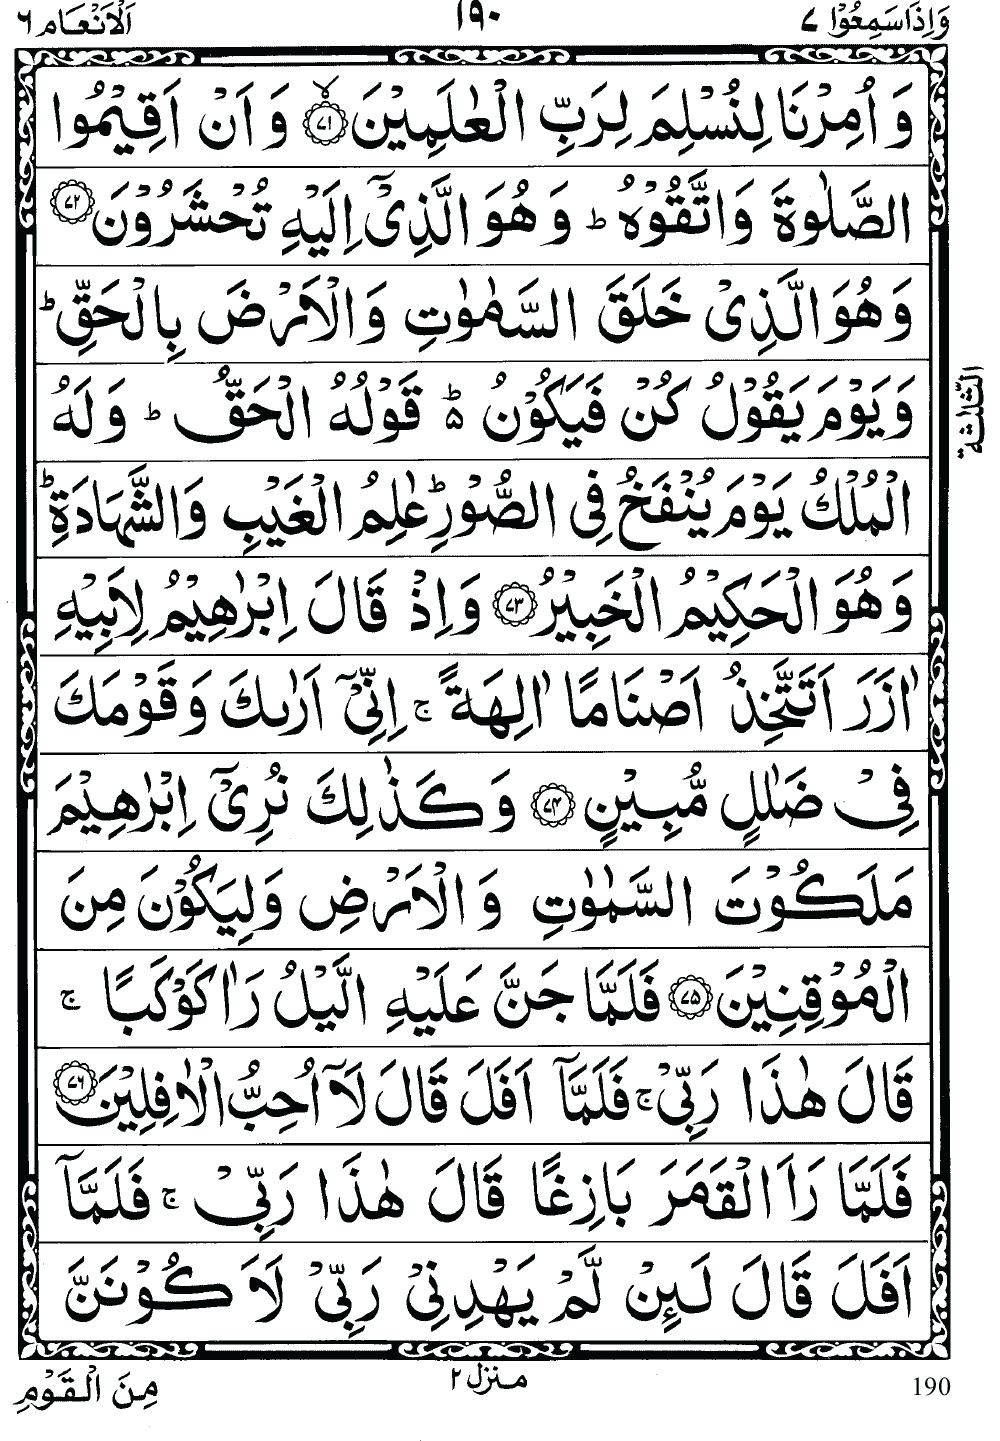 وَاِذَا سَمِعُوْا ٧ ١٩٠ اَلْاَنْعَام ٦
وَ اُمِرْنَا لِنُسْلِمَ لِرَبِّ الْعٰلَمِيْنَ ۙ﴿٧١﴾ وَ اَنْ اَقِيْمُوا
الصَّلٰوةَ وَاتَّقُوْهُ ؕ وَ هُوَ الَّذِيْۤ اِلَيْهِ تُحْشَرُوْنَ ﴿٧٢﴾
وَ هُوَ الَّذِيْ خَلَقَ السَّمٰوٰتِ وَالْاَرْضَ بِالْحَقِّ ؕ
وَ يَوْمَ يَقُوْلُ كُنْ فَيَكُوْنُ ؕ۬ قَوْلُهُ الْحَقُّ ؕ وَ لَهُ
الْمُلْكُ يَوْمَ يُنْفَخُ فِي الصُّوْرِ ؕ عٰلِمُ الْغَيْبِ وَالشَّهَادَةِ ؕ
وَ هُوَ الْحَكِيْمُ الْخَبِيْرُ ﴿٧٣﴾ وَ اِذْ قَالَ اِبْرٰهِيْمُ لِاَبِيْهِ
اٰزَرَ اَتَتَّخِذُ اَصْنَامًا اٰلِهَةً ۚ اِنِّيْۤ اَرٰىكَ وَ قَوْمَكَ
فِيْ ضَلٰلٍ مُّبِيْنٍ ﴿٧٤﴾ وَ كَذٰلِكَ نُرِيْۤ اِبْرٰهِيْمَ
مَلَكُوْتَ السَّمٰوٰتِ وَ الْاَرْضِ وَ لِيَكُوْنَ مِنَ
الْمُوْقِنِيْنَ ﴿٧٥﴾ فَلَمَّا جَنَّ عَلَيْهِ الَّيْلُ رَاٰ كَوْكَبًا ۚ
قَالَ هٰذَا رَبِّيْ ۚ فَلَمَّاۤ اَفَلَ قَالَ لَاۤ اُحِبُّ الْاٰفِلِيْنَ ﴿٧٦﴾
فَلَمَّا رَاَ الْقَمَرَ بَازِغًا قَالَ هٰذَا رَبِّيْ ۚ فَلَمَّاۤ
اَفَلَ قَالَ لَىِٕنْ لَّمْ يَهْدِنِيْ رَبِّيْ لَاَكُوْنَنَّ
الثلثة
مِنَ الْقَوْمِ منزل ٢ 190